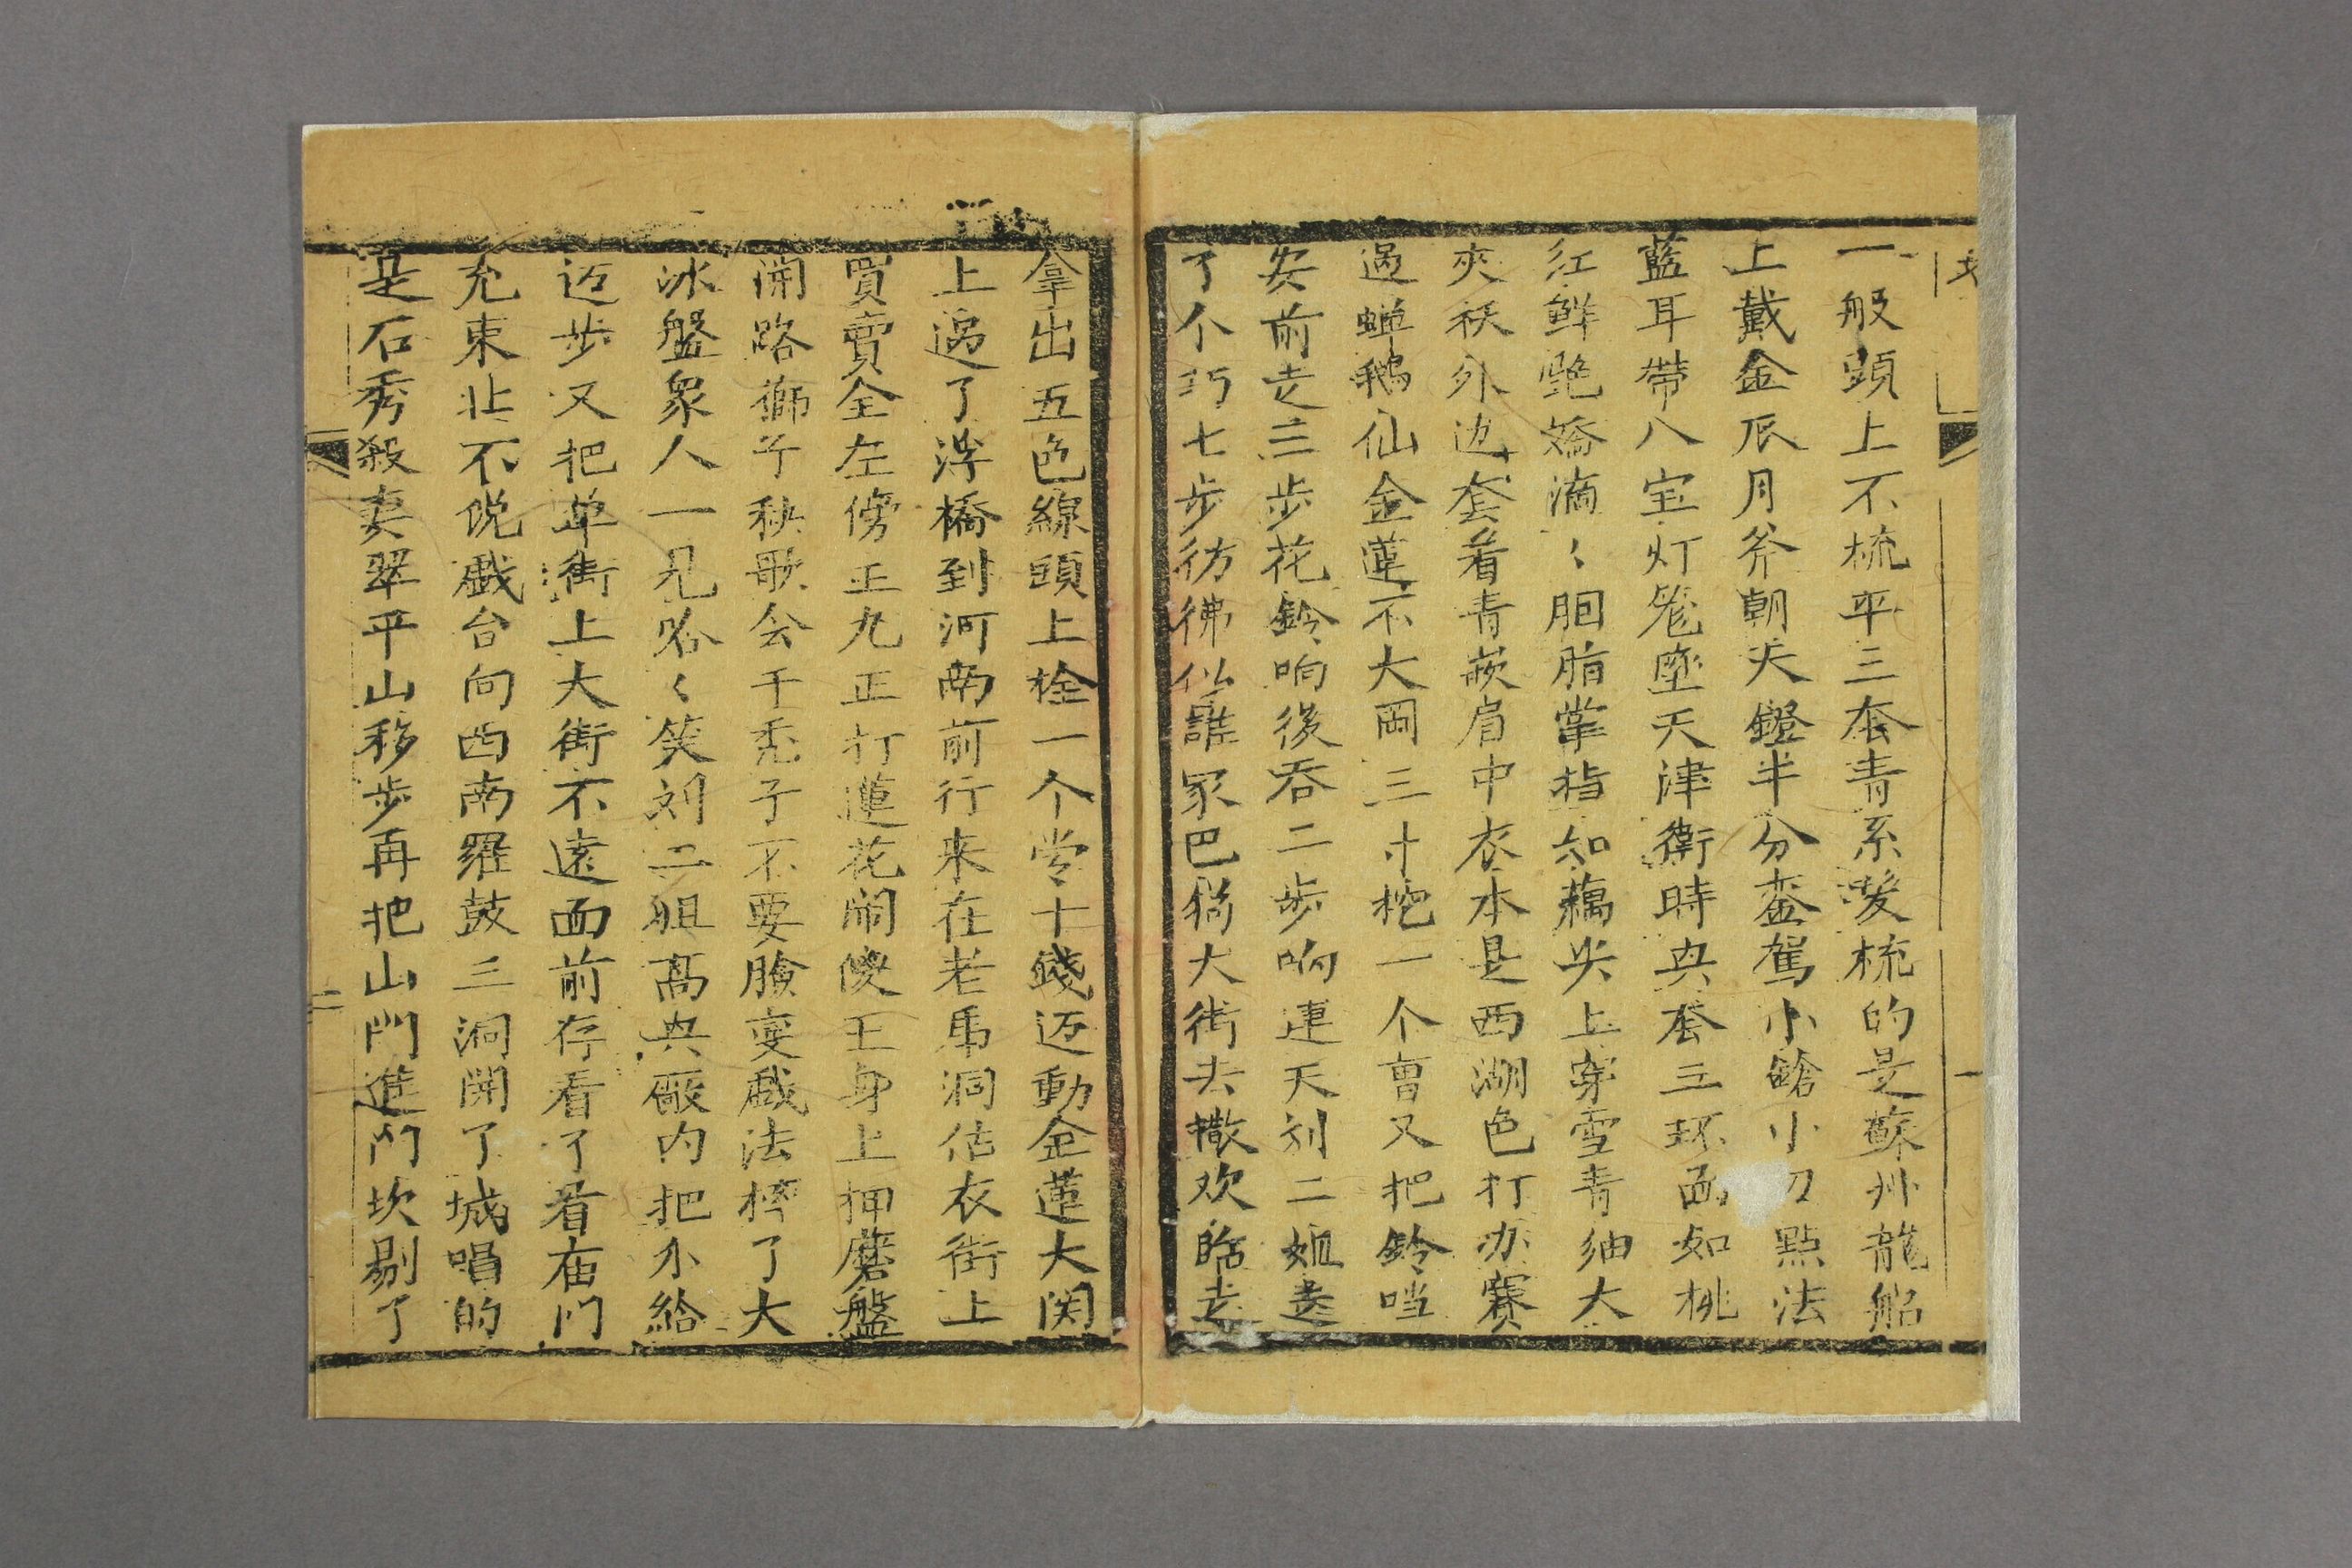 一般頭上不梳平三套青系髮梳的是蘇州龍船
上戴金瓜月斧朝天鐙半分鑾駕小鎗小刀點法
藍耳帶八宝灯笼墜天津衛時兴套三环面如桃
红鲜艳嬌滴〻胭脂掌指如藕尖上穿雪青紬大
夹袄外边套着青嵌肩中衣本是西湖色打办赛
過蟬鵝仙金蓮不大岡三寸挖一个窟又把鈴哨
安前走三步花鈴响後吞二步响連天刘二姐走
了个巧七步彷彿似誰家巴狗大街去撒欢曉走
拿出五色線頭上栓一个当十錢迈動金蓮大関
上過了浮橋到河南前行来在老虎洞估衣街上
買賣全左傍正九正打蓮花闹傻王身上押磨盤
開路獅子秧歌会干秃子不要臉变戲法榨了大
冰盤衆人一見哈〻笑刘二姐高兴厰内把小給
迈步又把单街上大街不遠面前存看了看庙门
充東北不说戲台向西南羅鼓三洞開了城唱的
是石秀殺妻翠平山移步再把山門進门坎剔了